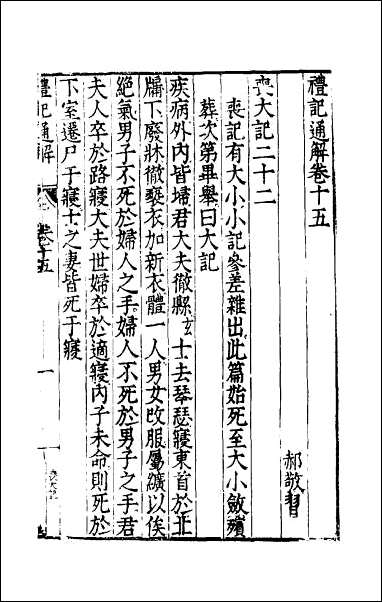 禮記通解卷十五
郝敬習
喪大記二十二
喪記有大小、小記參差雜出、此篇始死至大小斂殯
葬次第畢舉曰大記
疾病外內皆埽君大夫徹縣玄士去琴瑟寢東首於北
牖下廢牀徹褻衣加新衣體一人男女改服屬纊以俟
絕氣男子不死於婦人之手婦人不死於男子之手君
夫人卒於路寢大夫世婦卒於適寢內子未命則死於
下室遷尸于寢士之妻皆死于寢
禮記通解
卷十五
一